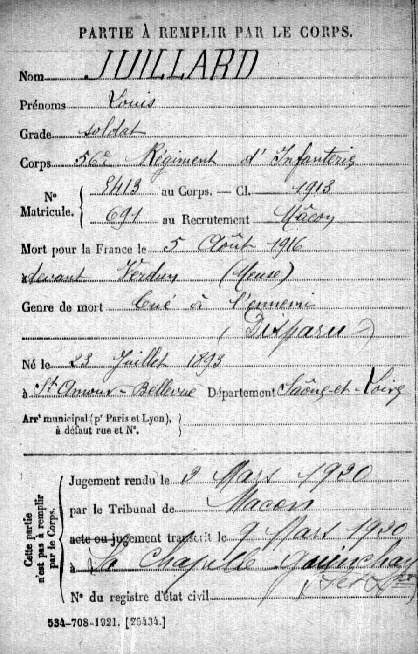 PARTIE À REMPLIR PAR LE CORPS.
Nom JUILLARD
Prénoms Louis
Grade soldat
Corps 56e Régiment d'Infanterie
N° Matricule. 8413 au Corps. — Cl. 1913
691 au Recrutement Mâcon
Mort pour la France le 5 Août 1916
devant Verdun (Meuse)
Genre de mort Tué à l'ennemi
(Disparu)
Né le 23 Juillet 1893
à St Amour-Bellevue Département Saône-et-Loire
Arrt municipal (pr Paris et Lyon),
à défaut rue et N°.
Cette partie n'est pas à remplir par le Corps.
Jugement rendu le 2 Mars 1920
par le Tribunal de Macon
acte ou jugement transcrit le 9 Mars 1920
à La Chapelle Guinchay
N° du registre d'état civil
534-708-1921. [25434.]